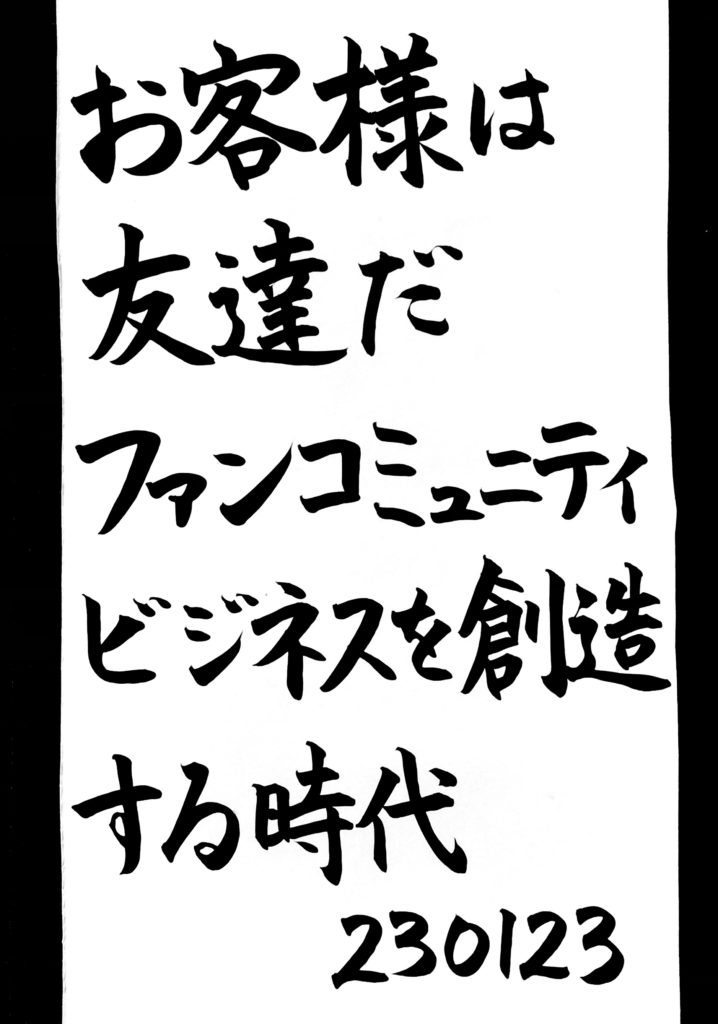 お客様は
友達だ
ファンコミュニティ
ビジネスを創造
する時代
230123